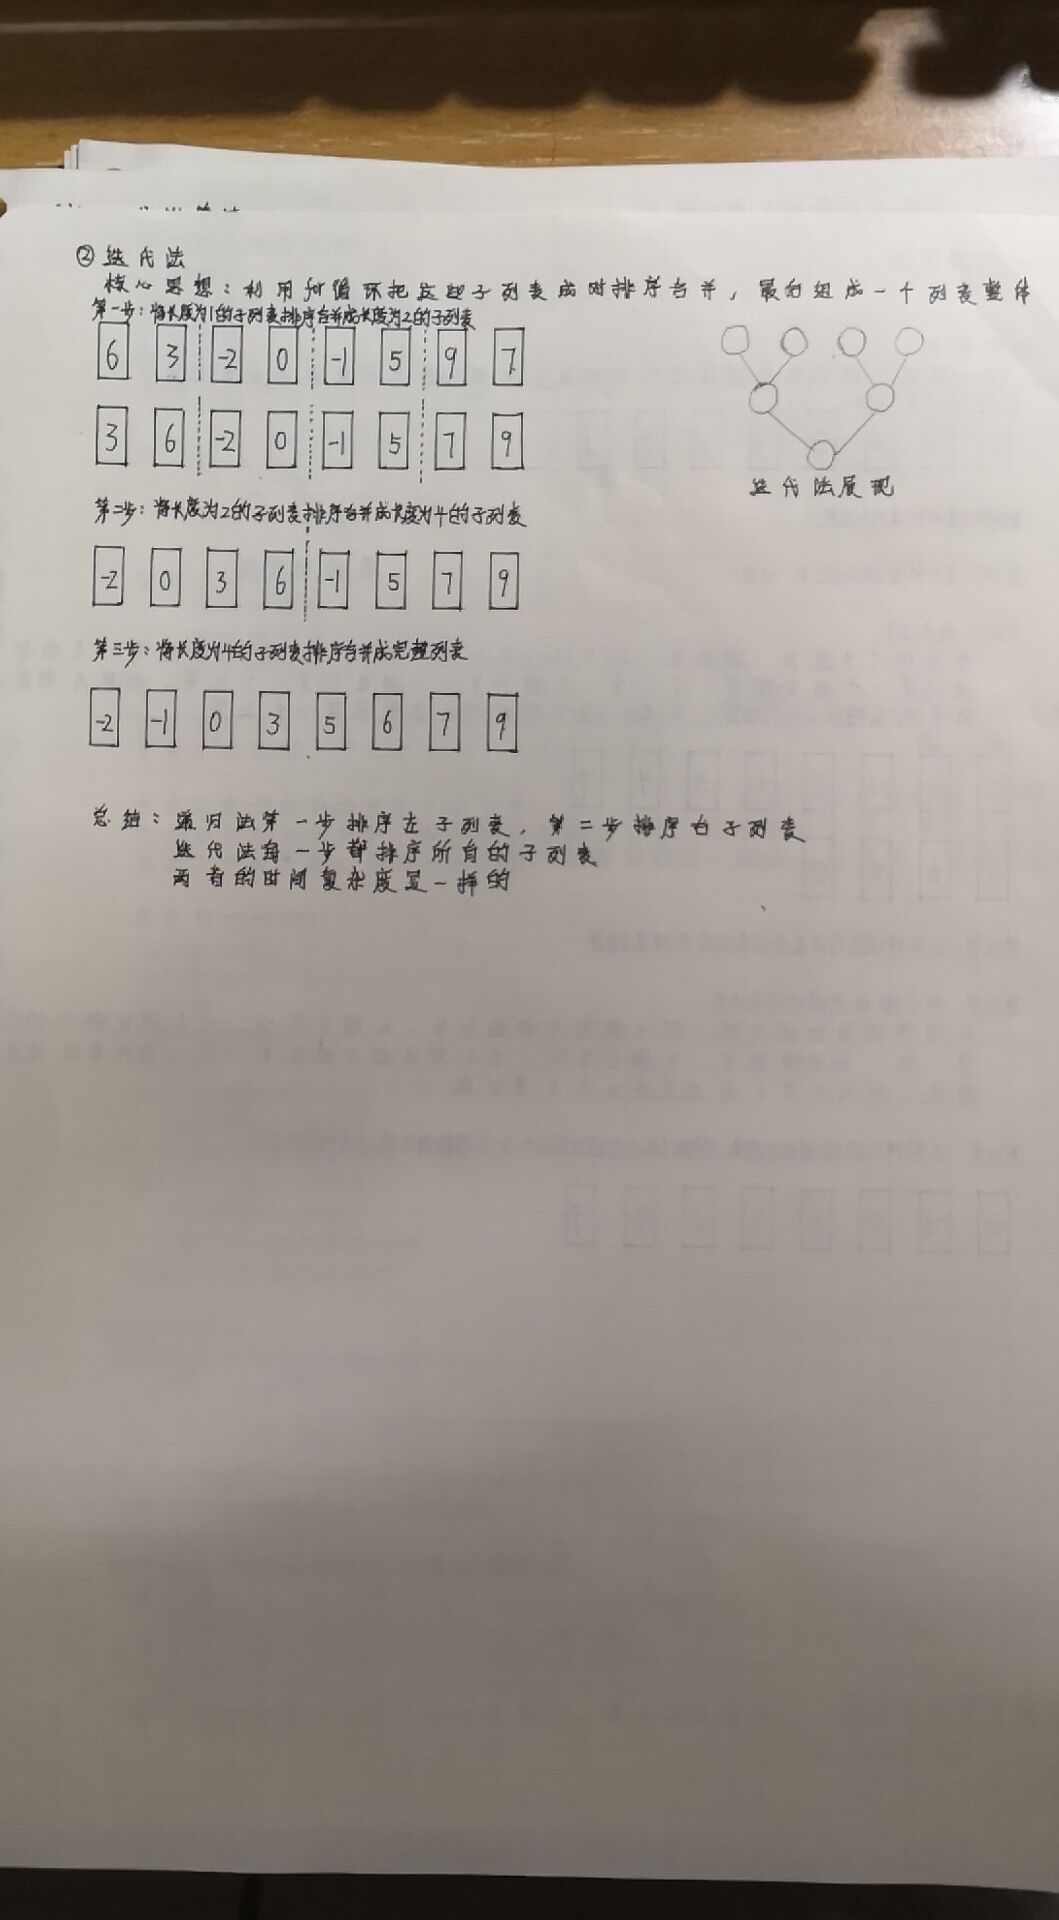 ② 迭代法
核心思想：利用for循环把这些子列表成对排序合并，最后组成一个列表整体
第一步：将长度为1的子列表排序合并成长度为2的子列表
6 3 -2 0 -1 5 9 7
3 6 -2 0 -1 5 7 9
迭代法展现
第二步：将长度为2的子列表排序合并成长度为4的子列表
-2 0 3 6 -1 5 7 9
第三步：将长度为4的子列表排序合并成完整列表
-2 -1 0 3 5 6 7 9
总结：递归法第一步排序左子列表，第二步排序右子列表
迭代法每一步都排序所有的子列表
两者的时间复杂度是一样的